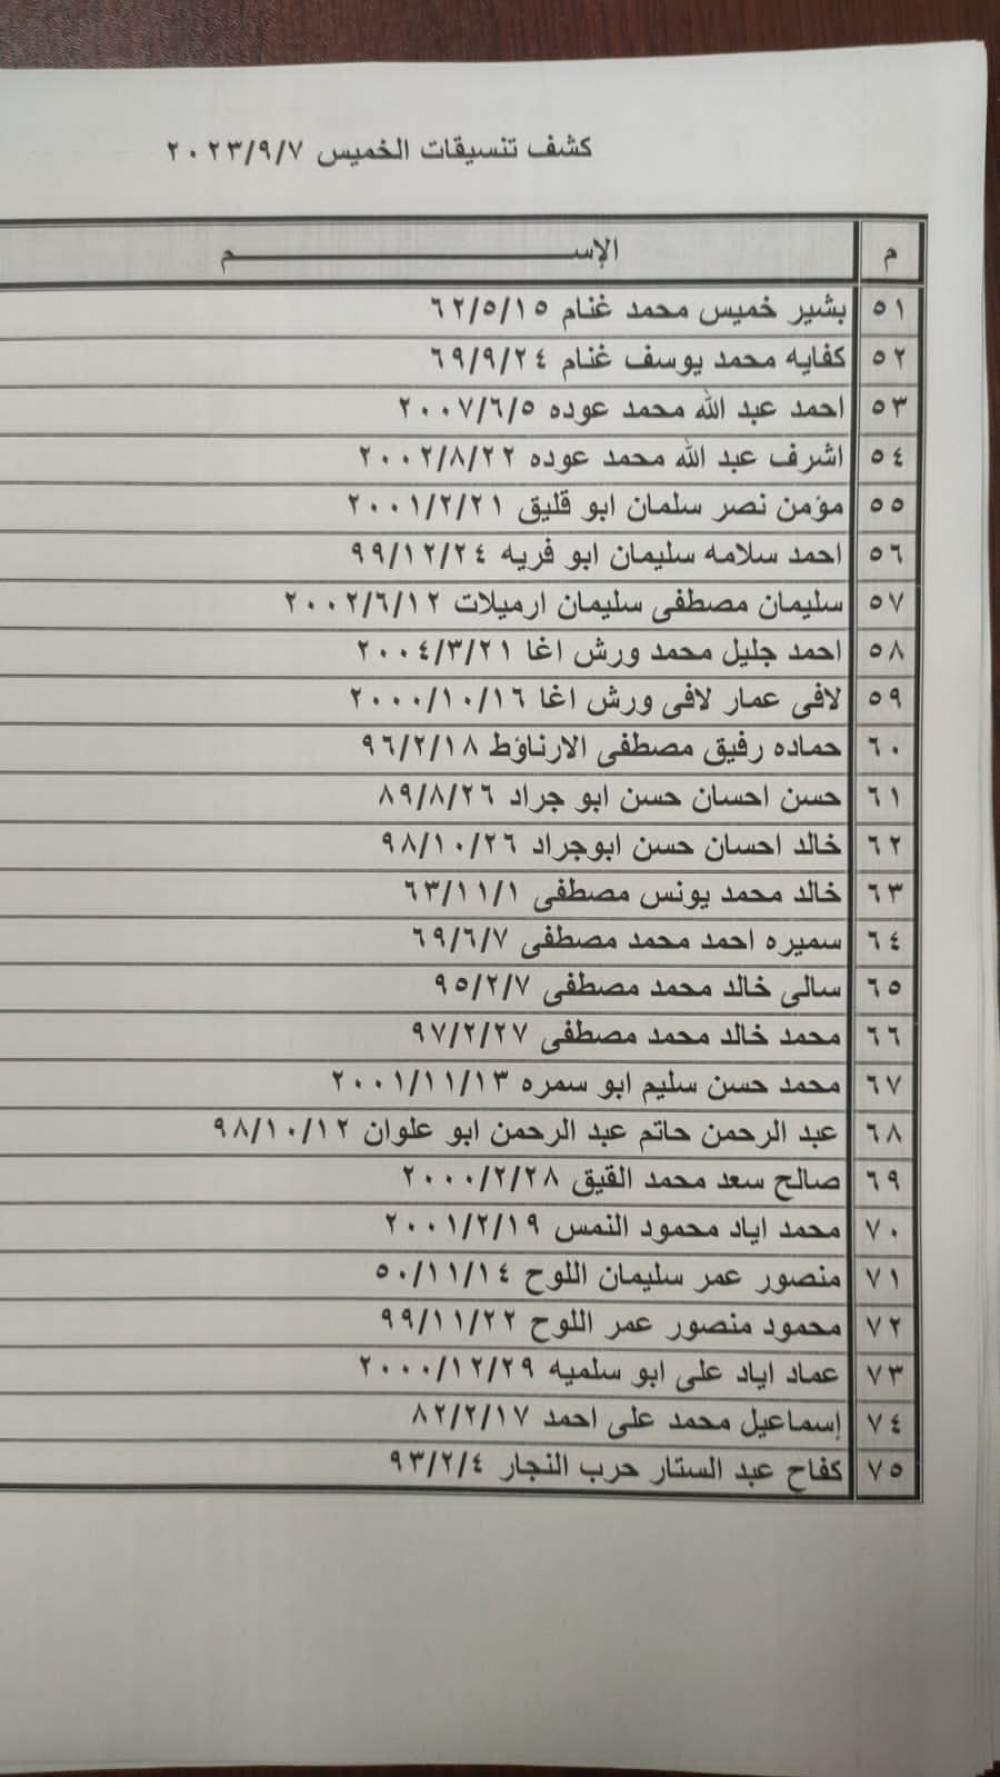 كشف تنسيقات الخميس ٢٠٢٣/٩/٧
م الإســـــــــــم
٥١ بشير خميس محمد غنام ٦٢/٥/١٥
٥٢ كفايه محمد يوسف غنام ٦٩/٩/٢٤
٥٣ احمد عبد الله محمد عوده ٢٠٠٧/٦/٥
٥٤ اشرف عبد الله محمد عوده ٢٠٠٢/٨/٢٢
٥٥ مؤمن نصر سلمان ابو قليق ٢٠٠١/٢/٢١
٥٦ احمد سلامه سليمان ابو فريه ٩٩/١٢/٢٤
٥٧ سليمان مصطفى سليمان ارميلات ٢٠٠٢/٦/١٢
٥٨ احمد جليل محمد ورش اغا ٢٠٠٤/٣/٢١
٥٩ لافى عمار لافى ورش اغا ٢٠٠٠/١٠/١٦
٦٠ حماده رفيق مصطفى الارناؤط ٩٦/٢/١٨
٦١ حسن احسان حسن ابو جراد ٨٩/٨/٢٦
٦٢ خالد احسان حسن ابوجراد ٩٨/١٠/٢٦
٦٣ خالد محمد يونس مصطفى ٦٣/١١/١
٦٤ سميره احمد محمد مصطفى ٦٩/٦/٧
٦٥ سالى خالد محمد مصطفى ٩٥/٢/٧
٦٦ محمد خالد محمد مصطفى ٩٧/٢/٢٧
٦٧ محمد حسن سليم ابو سمره ٢٠٠١/١١/١٣
٦٨ عبد الرحمن حاتم عبد الرحمن ابو علوان ٩٨/١٠/١٢
٦٩ صالح سعد محمد القيق ٢٠٠٠/٢/٢٨
٧٠ محمد اياد محمود النمس ٢٠٠١/٢/١٩
٧١ منصور عمر سليمان اللوح ٥٠/١١/١٤
٧٢ محمود منصور عمر اللوح ٩٩/١١/٢٢
٧٣ عماد اياد على ابو سلميه ٢٠٠٠/١٢/٢٩
٧٤ إسماعيل محمد على احمد ٨٢/٢/١٧
٧٥ كفاح عبد الستار حرب النجار ٩٣/٢/٤